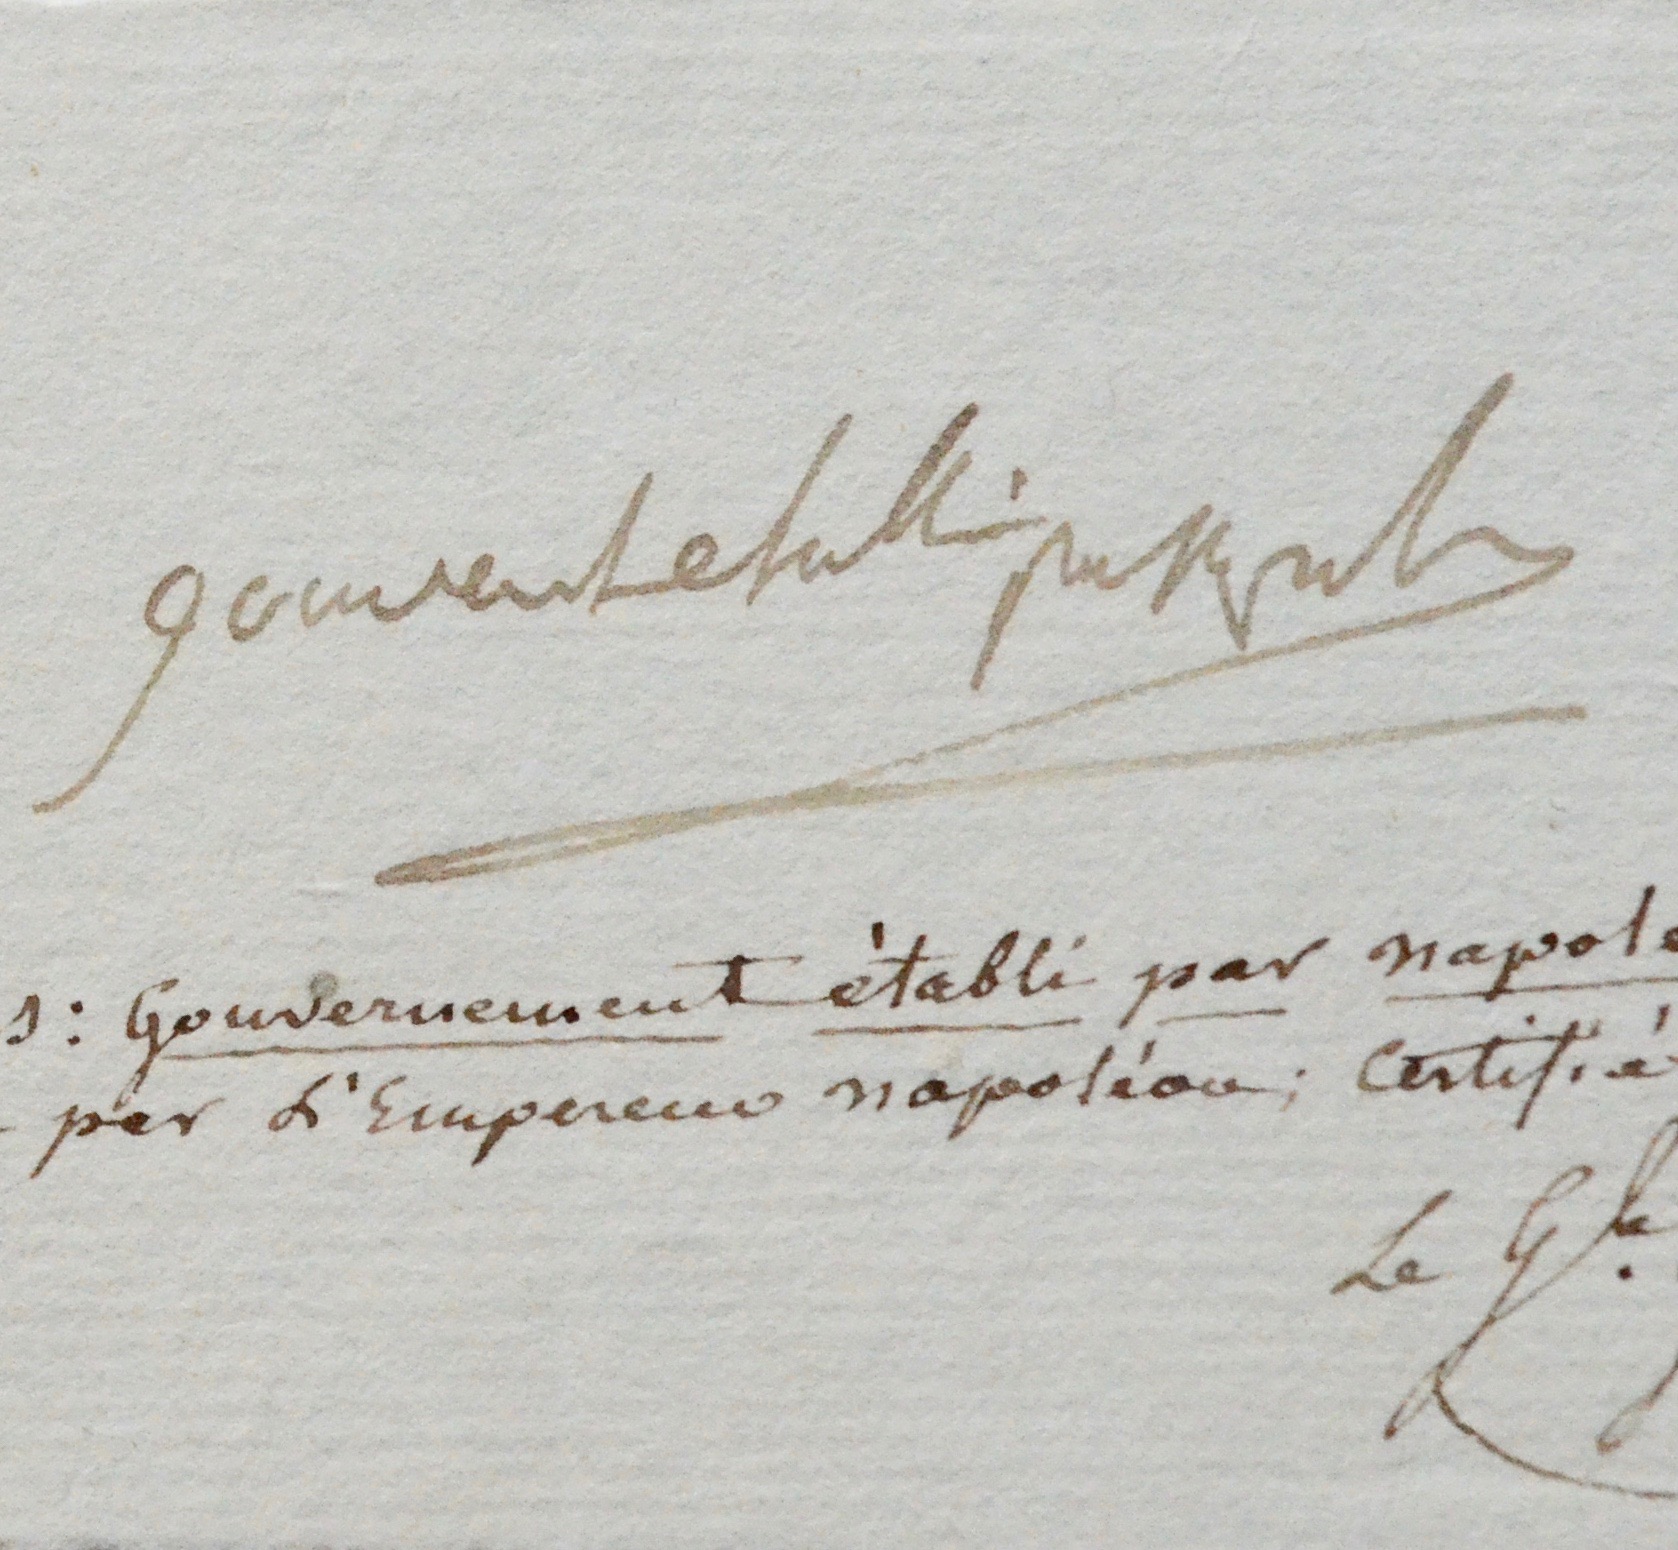 gouvent etabli par Napole
s: Gouvernement établi par napole
par L'Empereur napoléon; Certifié
Le Gal.